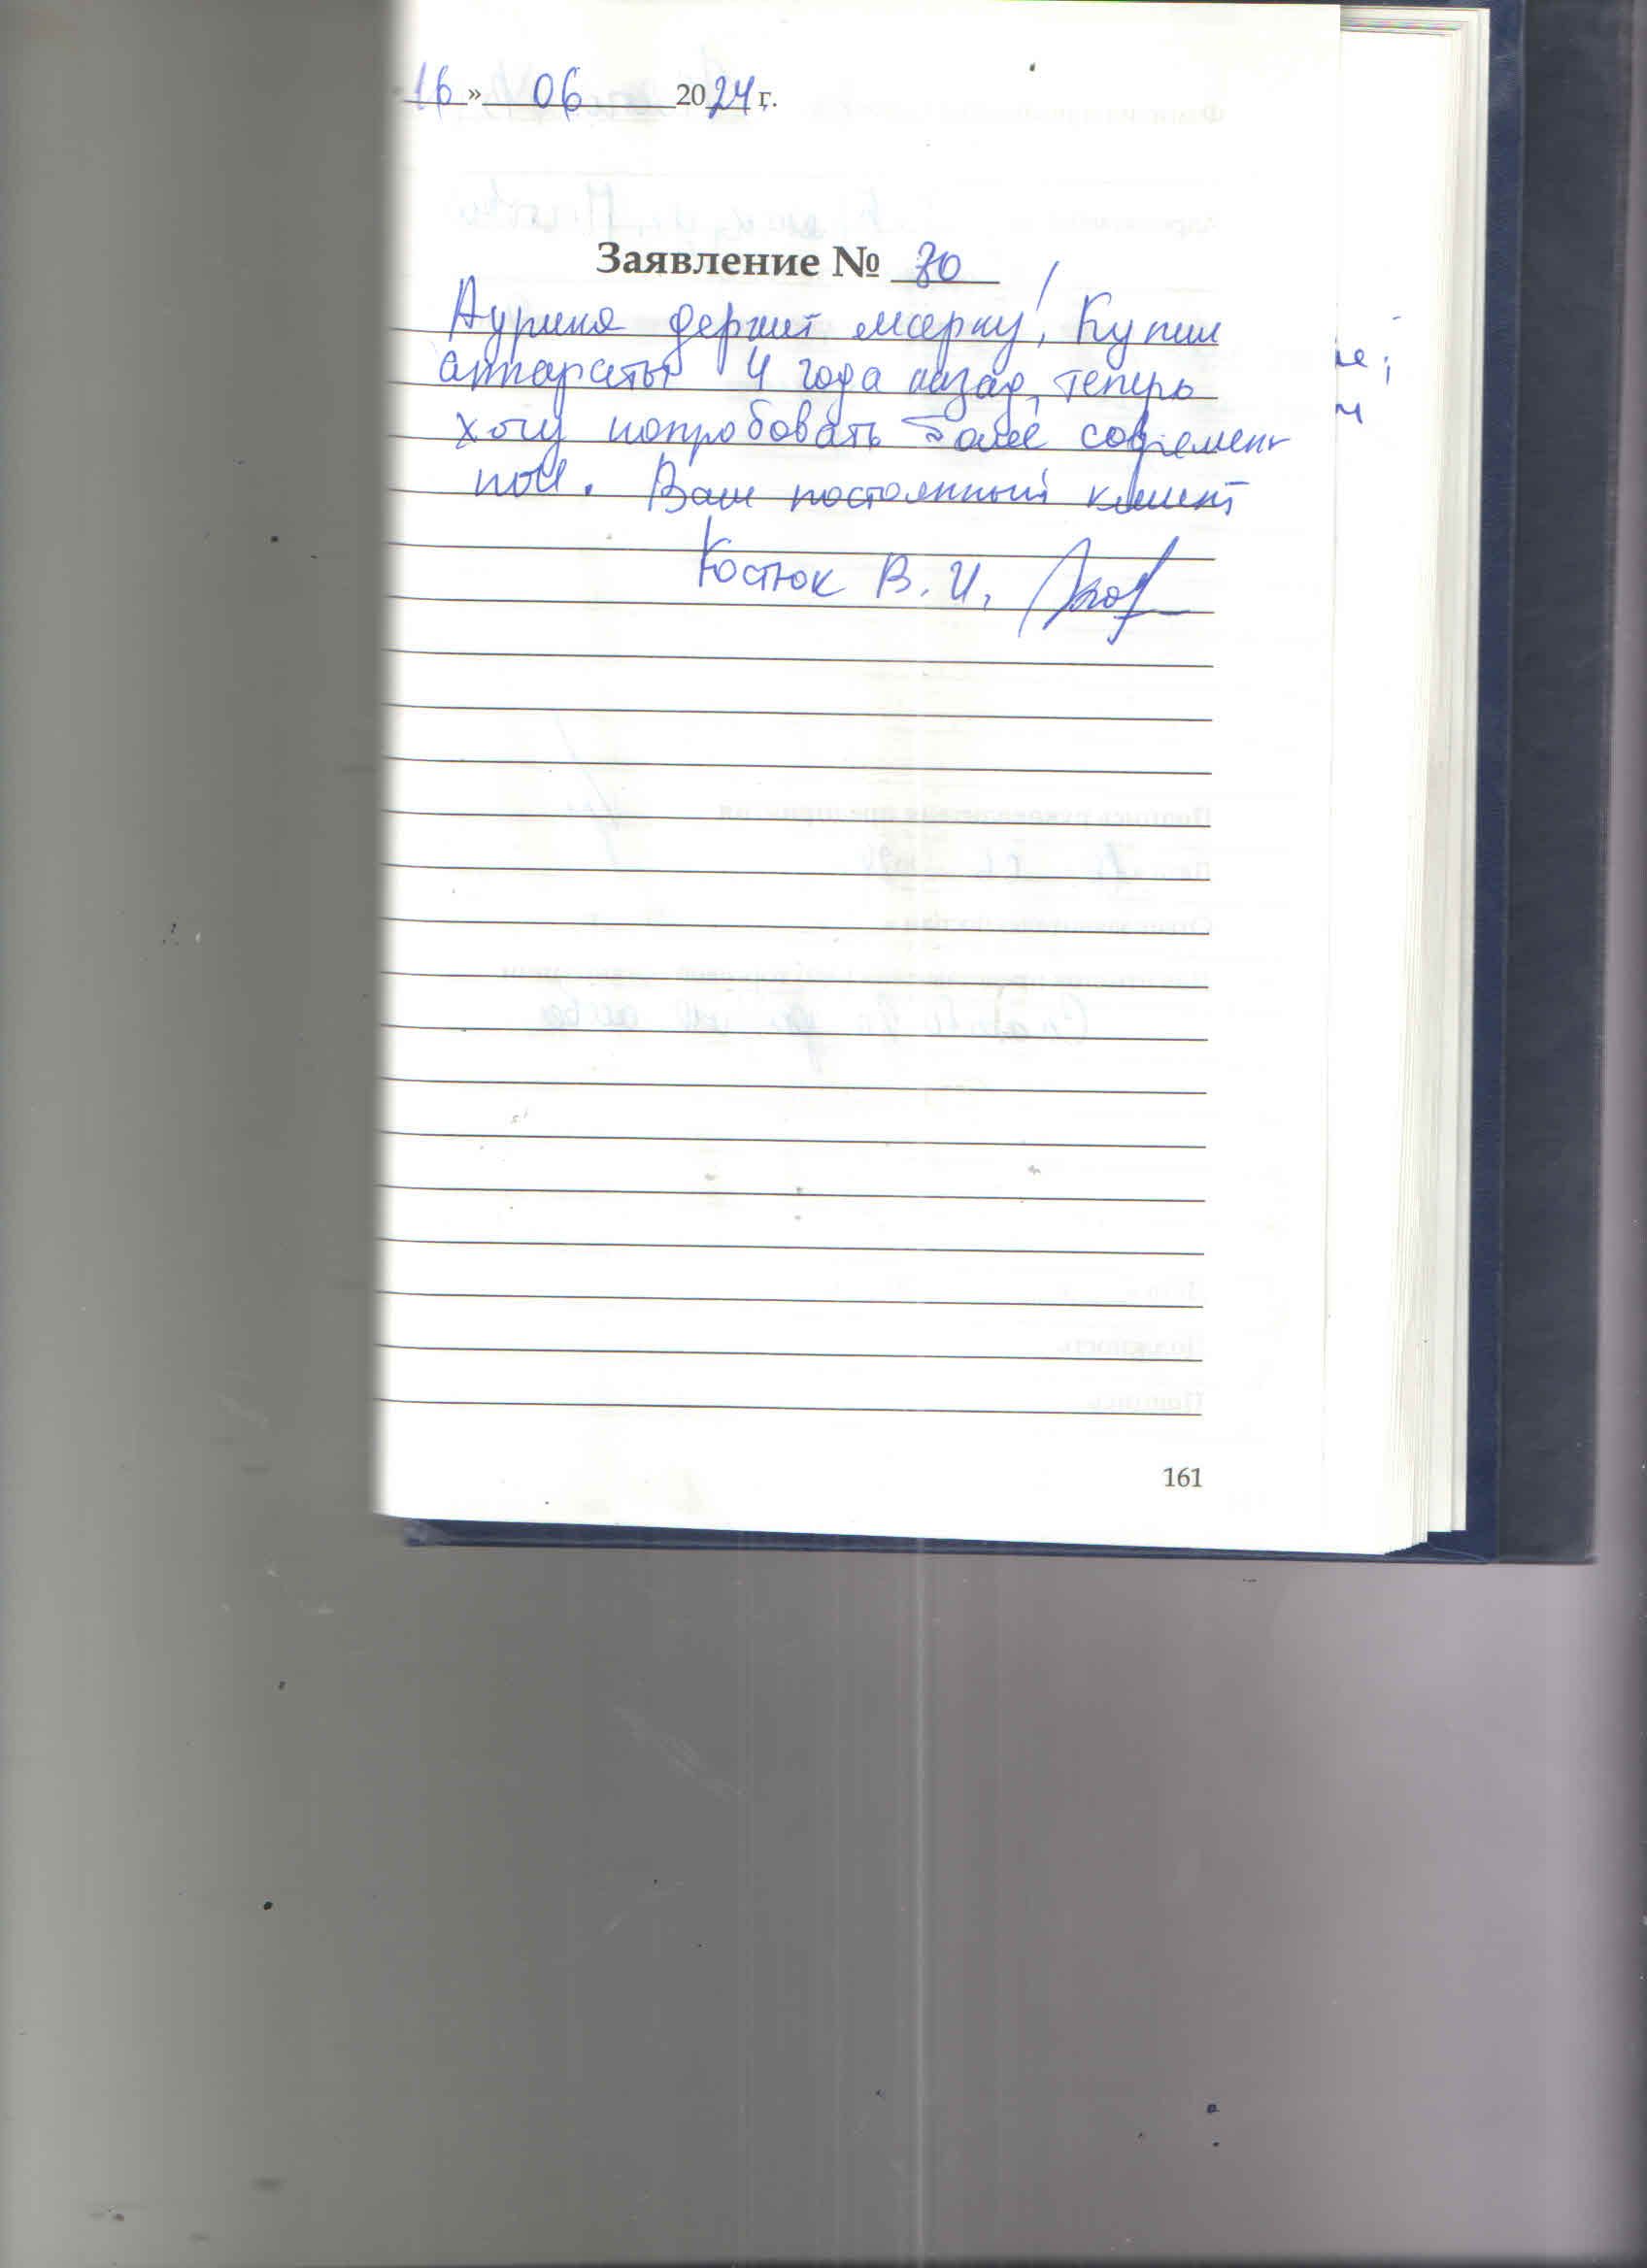 16» 06 2024 г.
Заявление № 30
Аурика держит марку! Купил
аппараты 4 года назад, теперь
хочу попробовать более современ
ной. Ваш постоянный клиент
Костюк В. И.
161